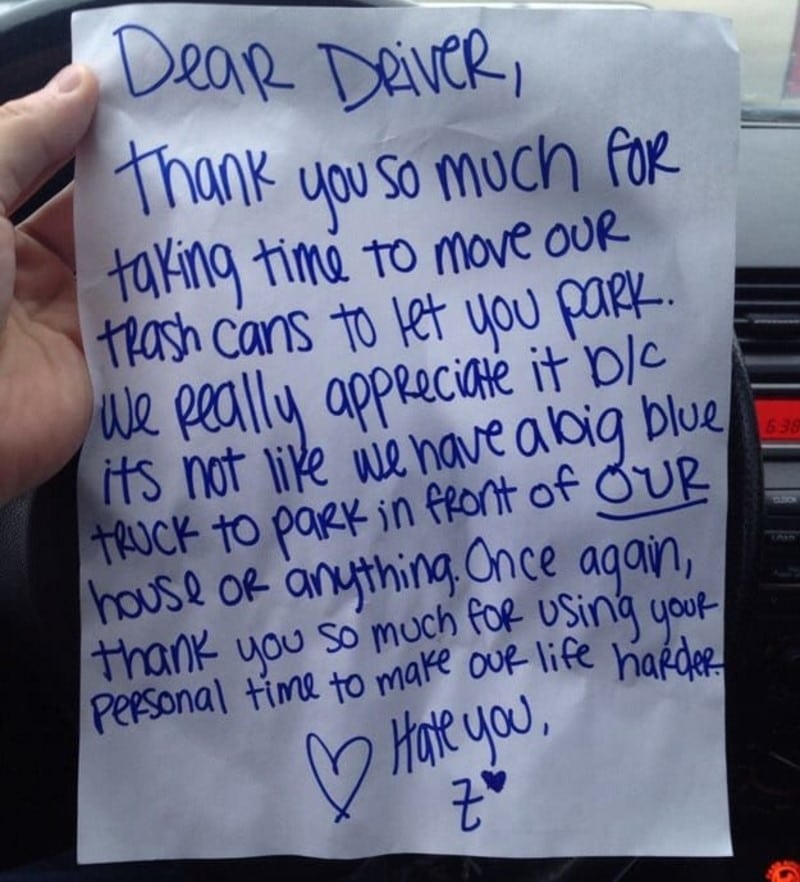 Dear Driver,
Thank you so much for
taking time to move our
trash cans to let you park.
We really appreciate it b/c
its not like we have a big blue
truck to park in front of OUR
house or anything. Once again,
thank you so much for using your
personal time to make our life harder.
♡ Hate you,
Z♥
6:38